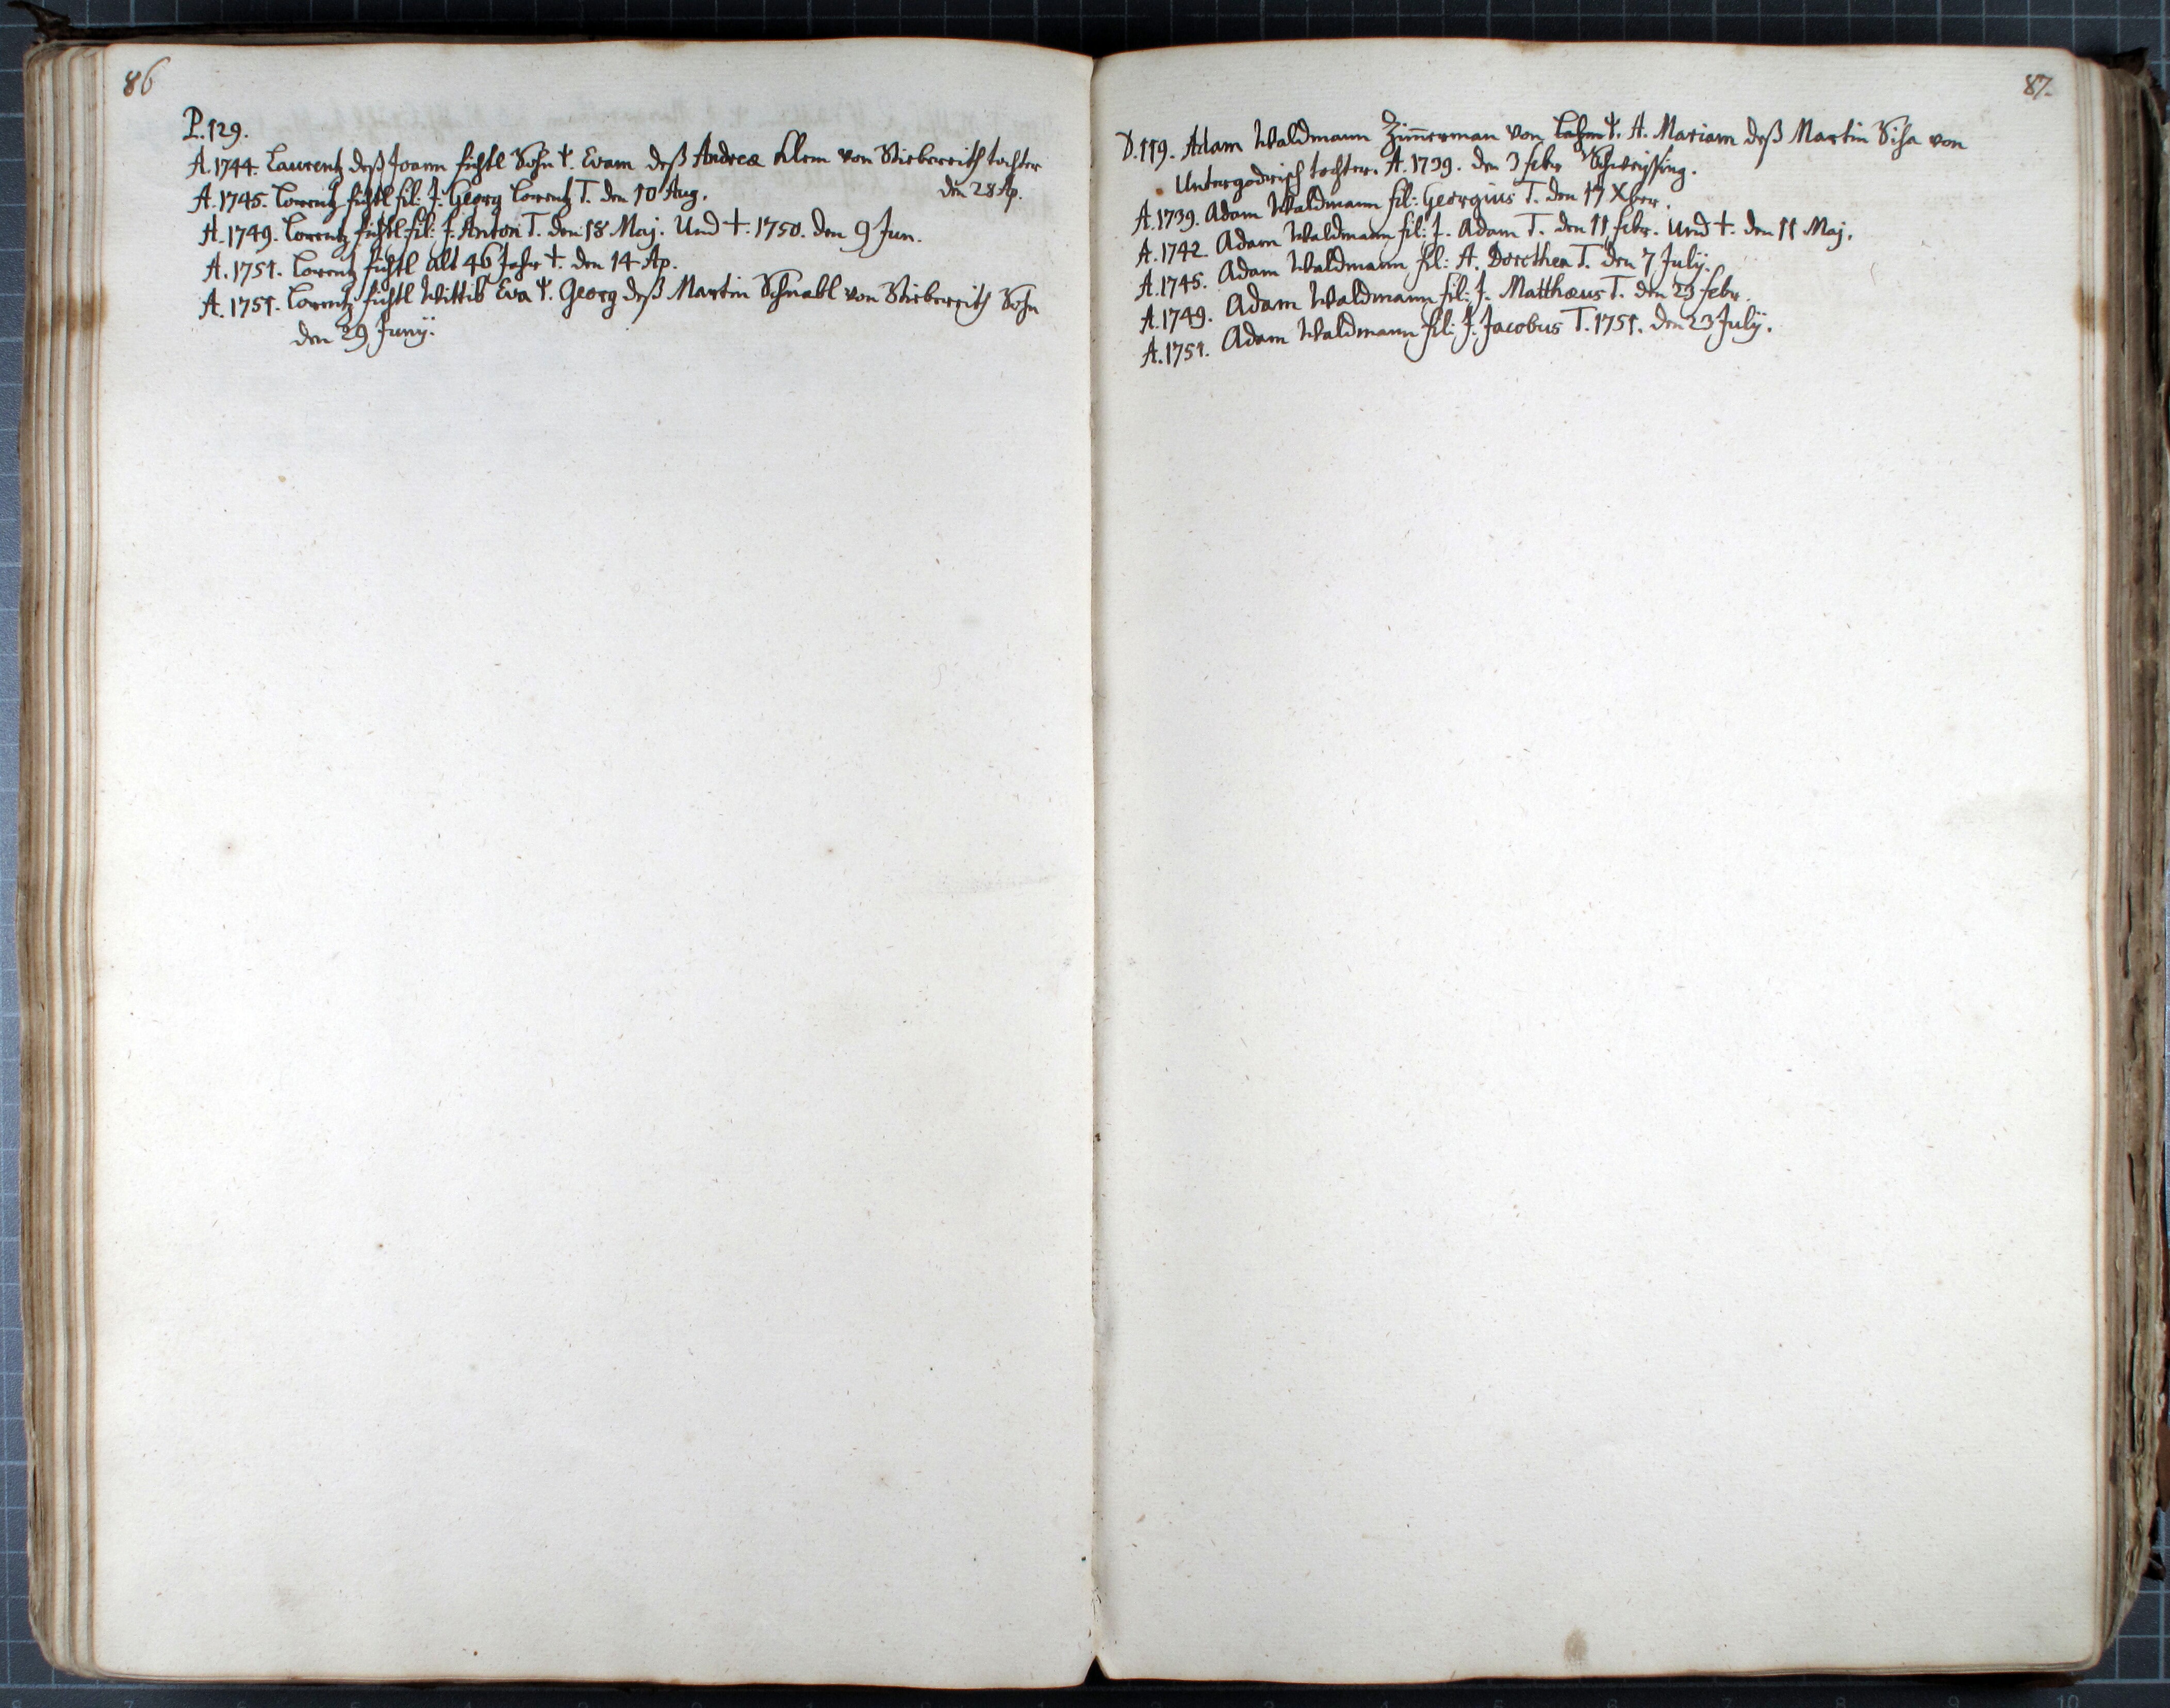 86
P. 129.
A. 1744. Laurentz deß Joann fichtl Sohn Ψ. Evam deß Andreæ Klem von Stiebereith tochter
den 28 Ap.
A. 1745. Lorentz fichtl fil: J. Georg Lorentz T. den 10 Aug.
A. 1749. Lorentz fichtl fil: J. Anton T. den 18 Maj. Und †. 1750. den 9 Jun.
A. 1751. Lorentz fichtl alt 46 Jahr †. den 14 Ap.
A. 1751. Lorentz fichtl Wittib Eva Ψ. Georg deß Martin Schnabl von Stiebereith Sohn
den 29 Junÿ.
87.
D. 119. Adam Waldmann Zim̅erman von Ψ. A. Mariam deß Martin von
Untergodrisch tochter. A. 1739. den 3 febr Schweissing.
A. 1739. Adam Waldmann fil: Georgius T. den 17 Xber.
A. 1742. Adam Waldmann fil: J. Adam T. den 11 febr. Und †. den 11 Maj.
A. 1745. Adam Waldmann fil: A. Dorothea T. den 7 Julÿ.
A. 1749. Adam Waldmann fil: J. Matthæus T. den 23 febr.
A. 1751. Adam Waldmann fil: J. Jacobus T. 1751. den 23 Julÿ.